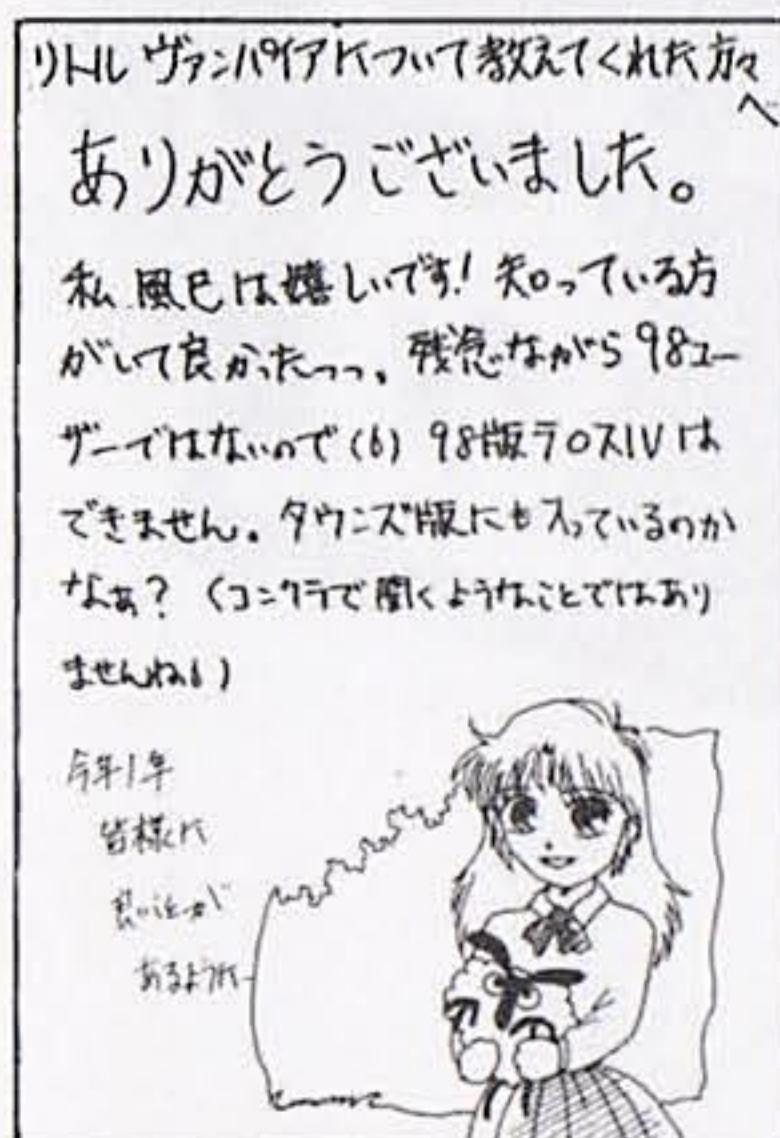 リトルヴァンパイアについて教えてくれた方々
へ
ありがとうございました。
私、風巳は嬉しいです! 知っている方
がいて良かったっっ。残念ながら98ユー
ザーではないので(6) 98版ラロスIVは
できません。タウンズ版にも入っているのか
なぁ? (コンクラで聞くようなことではあり
ませんね6)
今年1年
皆様に
良いことが
あるように